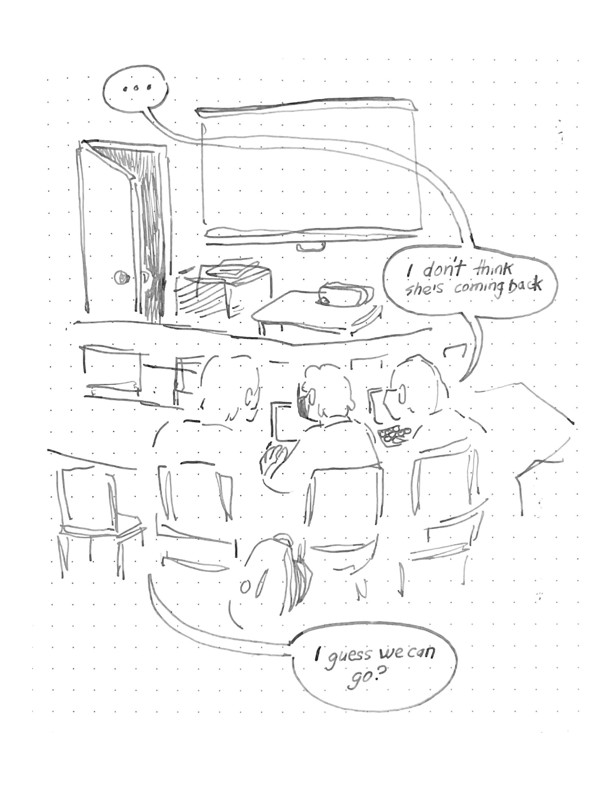 ...
I don't think
she's coming back
I guess we can
go?